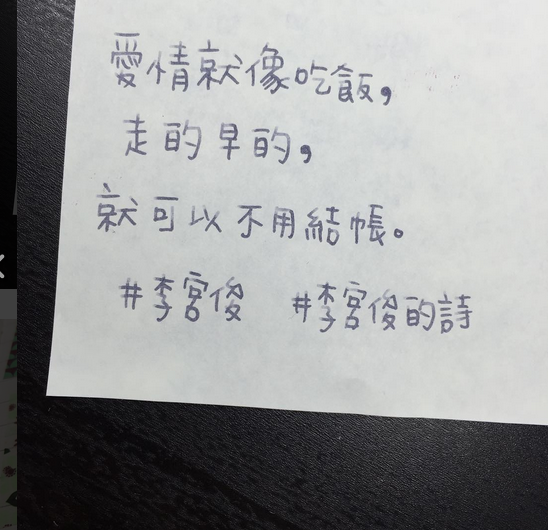 愛情就像吃飯，
走的早的，
就可以不用結帳。
#李宮俊 #李宮俊的詩